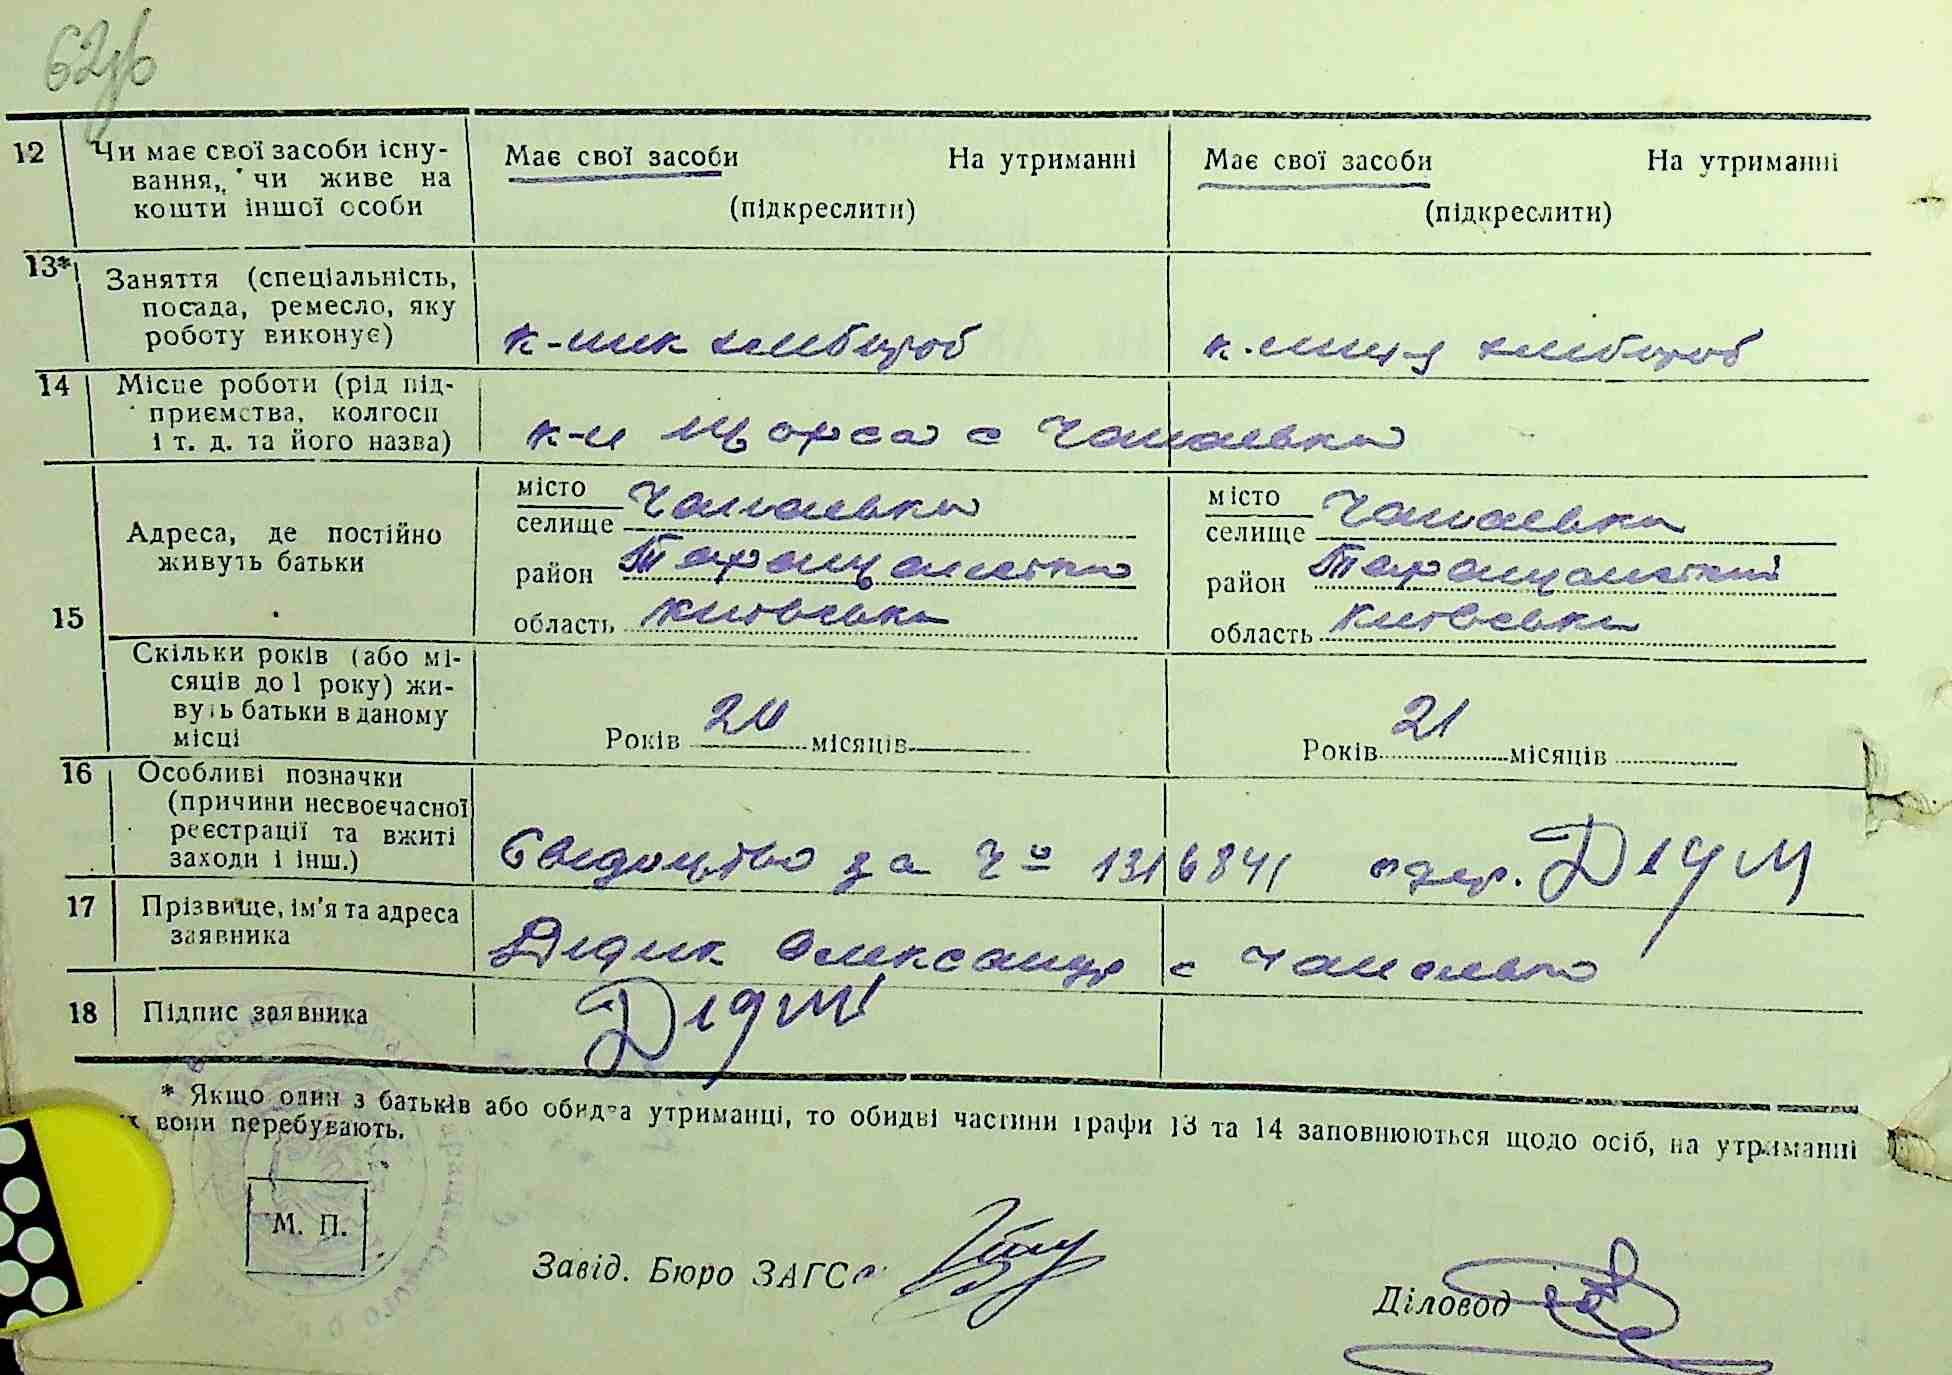 62зв
12 Чи має свої засоби існу- Має свої засоби На утриманні Має свої засоби На утриманні
вання, чи живе на
кошти іншої особи (підкреслити) (підкреслити)
13* Заняття (спеціальність,
посада, ремесло, яку
роботу виконує) к-ник хлібороб к-ниця хлібороб
14 Місце роботи (рід під-
приємства, колгосп
і т. д. та його назва) к-п Щорса с Чапаєвка
15 Адреса, де постійно
живуть батьки
місто Чапаєвка місто Чапаєвка
селище селище
район Таращанський район Таращанський
область Київська область Київська
Скільки років (або мі-
сяців до 1 року) жи-
вуть батьки в даному
місці
Років 20 місяців Років 21 місяців
16 Особливі позначки
(причини несвоєчасної
реєстрації та вжиті
заходи і інш.) Свідоцтво за Ч= 1316841 одер.
17 Прізвище, ім'я та адреса
заявника Дідик Олександр с Чапаєвка
18 Підпис заявника
* Якщо один з батьків або обидва утриманці, то обидві частини графи 13 та 14 заповнюються щодо осіб, на утриманні
х вони перебувають.
М. П.
Завід. Бюро ЗАГС
Діловод